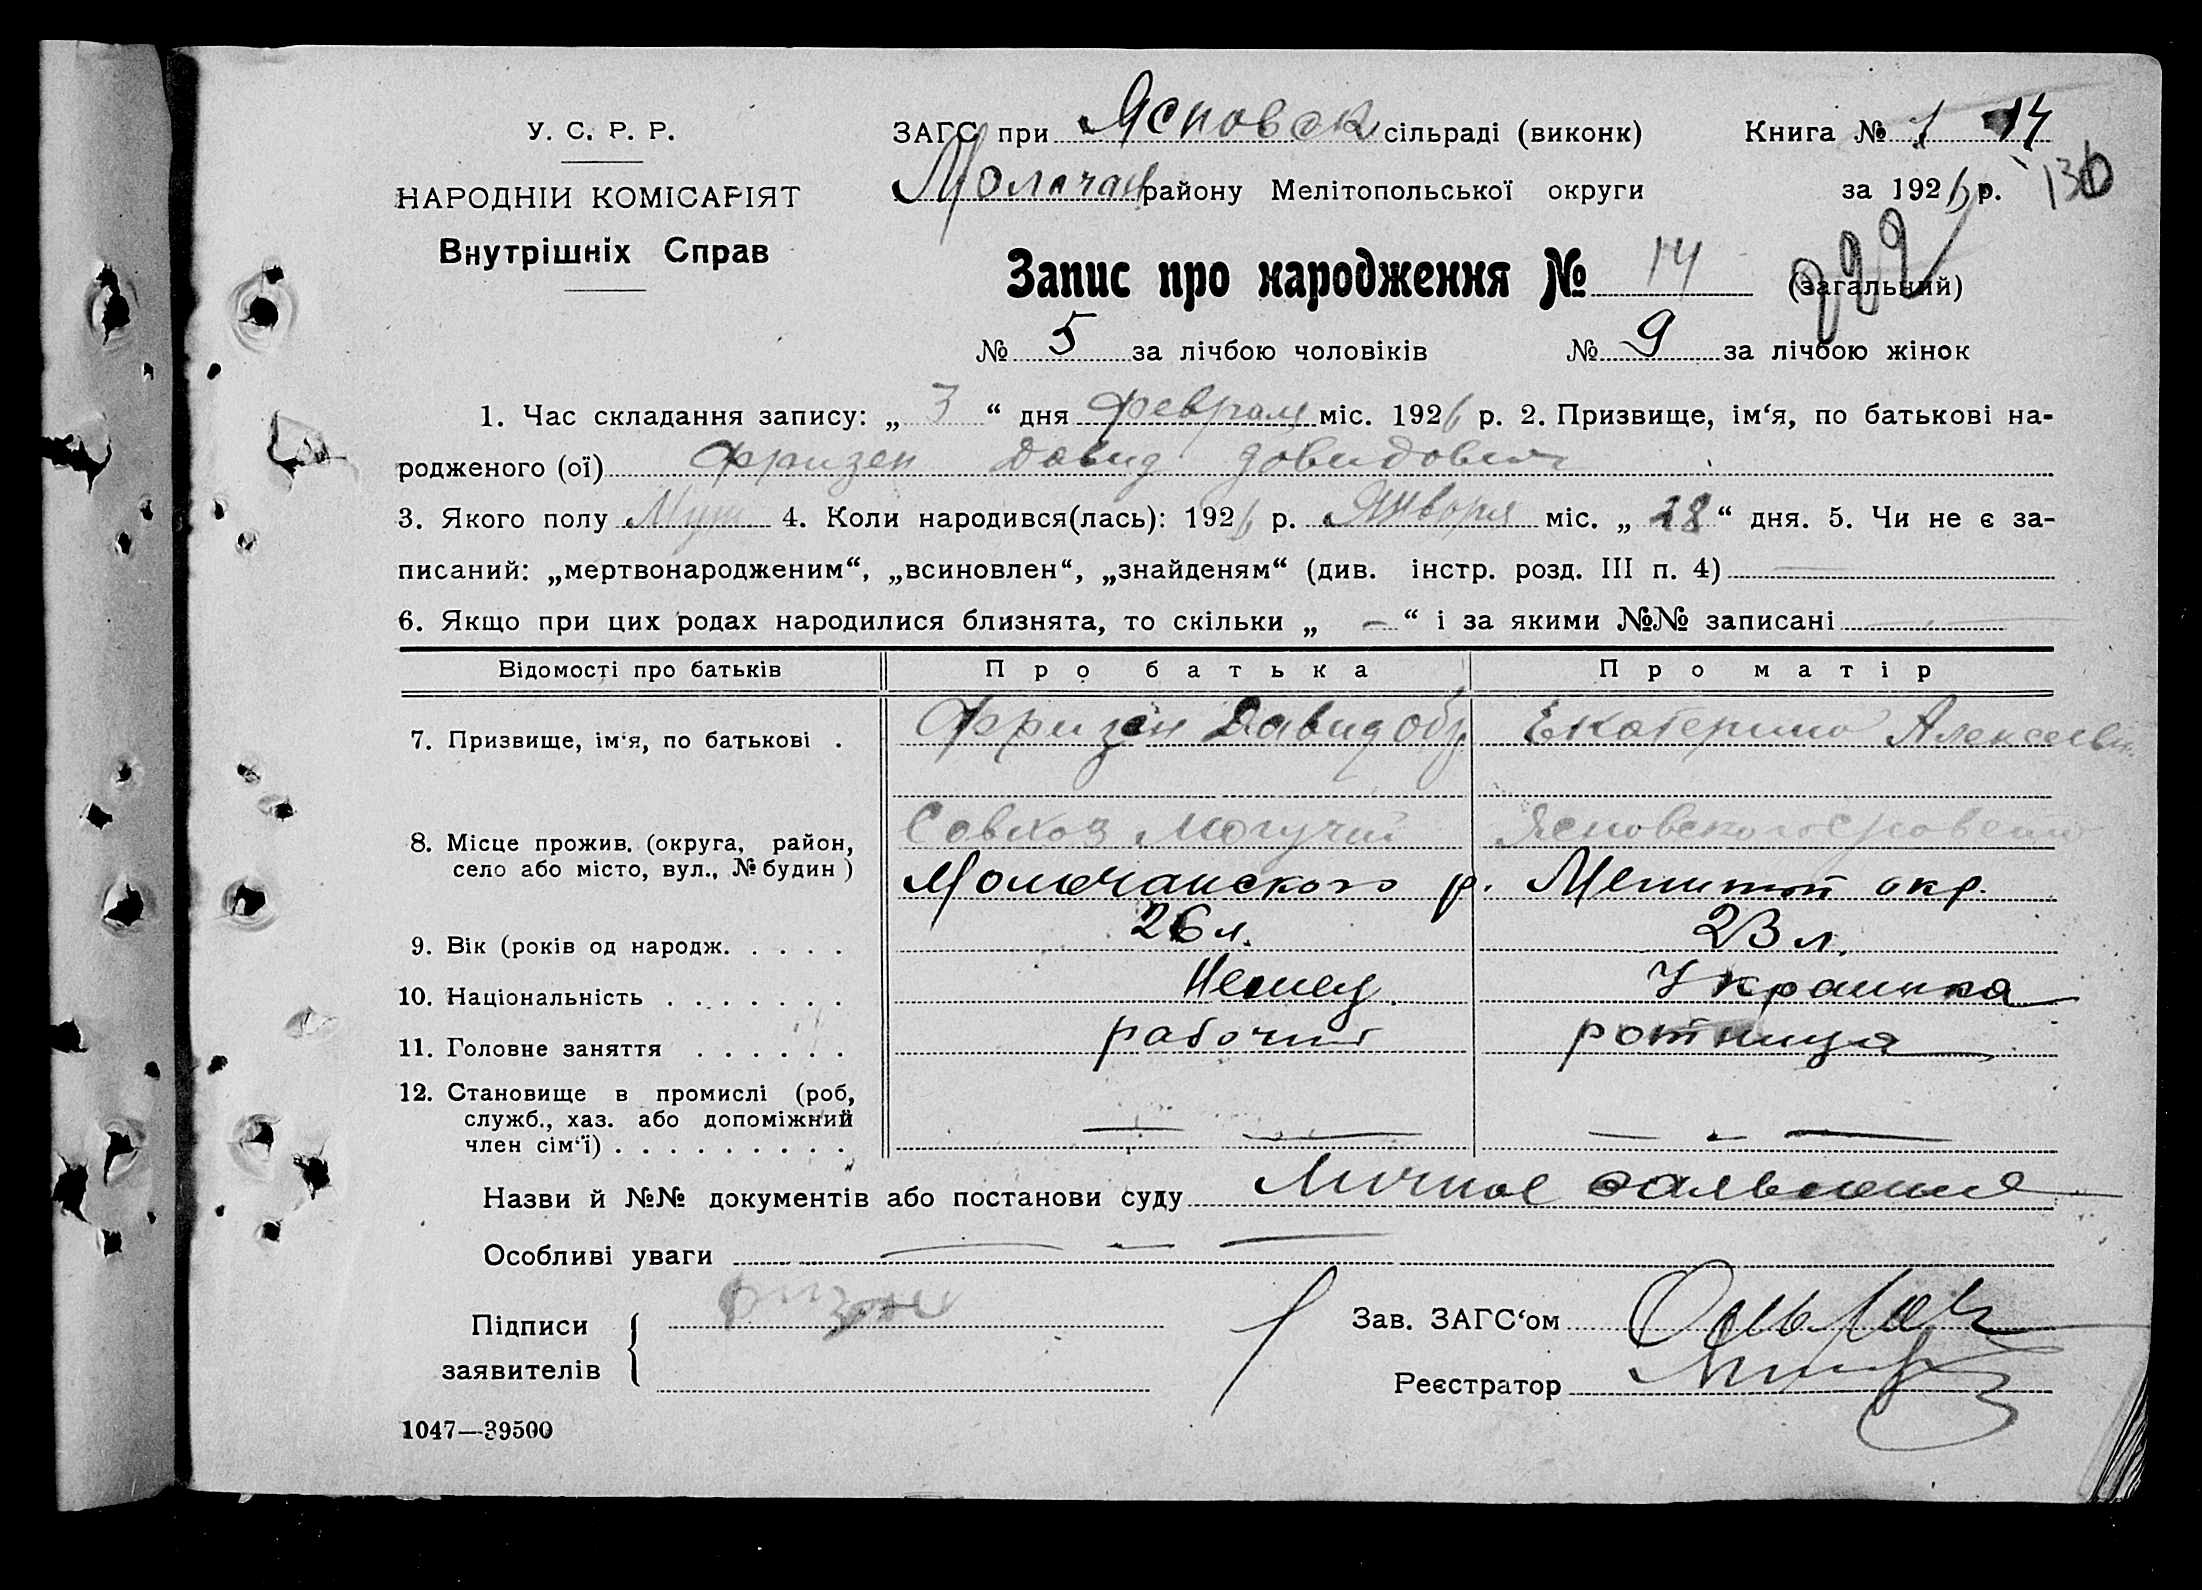 У. С. Р. Р.
НАРОДНІЙ КОМІСАРІЯТ
Внутрішніх Справ
ЗАГС при Ясновск сільраді (виконк) Книга № 1 14
Молочан району Мелітопольської округи за 1926 р. 136
Запис про народження № 14 (загальний)
№ 5 за лічбою чоловіків № 9 за лічбою жінок
1. Час складання запису: „ 3 “ дня февраля міс. 1926 р. 2. Призвище, ім‘я, по батькові на-
родженого (ої) Фризен Давид Довидович
3. Якого полу Муж 4. Коли народився(лась): 1926 р. Января міс. „ 28 “ дня. 5. Чи не є за-
писаний: „мертвонародженим“, „всиновлен“, „знайденям“ (див. інстр. розд. III п. 4) —
6. Якщо при цих родах народилися близнята, то скільки „ — “ і за якими №№ записані —
Відомості про батьків Про батька Про матір
7. Призвище, ім‘я, по батькові . Фризен Давид Екатерина Алексеевн
8. Місце прожив. (округа, район, Совхоз Могучий Ясновского
село або місто, вул., № будин ) Молочанского р. Мелитоп окр.
9. Вік (років од народж. . . . . 26 л. 23 л.
10. Національність . . . . . . . Немец Украинка
11. Головне заняття . . . . . . рабочий
12. Становище в промислі (роб,
служб., хаз. або допоміжний
член сім‘ї) . . . . . . . . . — — — - —
Назви й №№ документів або постанови суду Личное заявление
Особливі уваги — - —
Підписи
заявителів
Зав. ЗАГС‘ом
Реєстратор
1047—39500